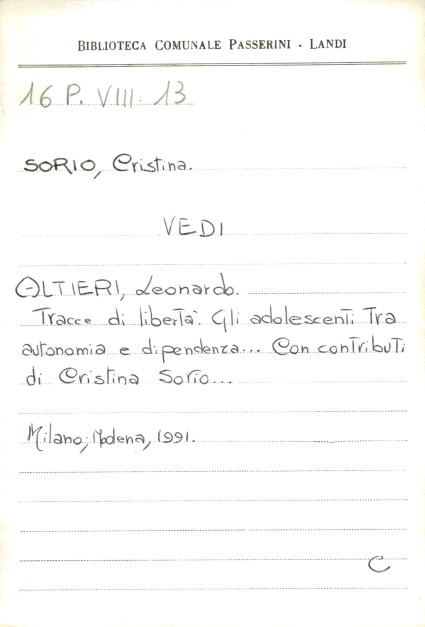 BIBLIOTECA COMUNALE PASSERINI - LANDI
16 P. VIII. 13
SORIO, Cristina.
VEDI
ALTIERI, Leonardo.
Tracce di libertà. Gli adolescenti tra
autonomia e dipendenza... Con contributi
di Cristina Sorio...
Milano; Modena, 1991.
C